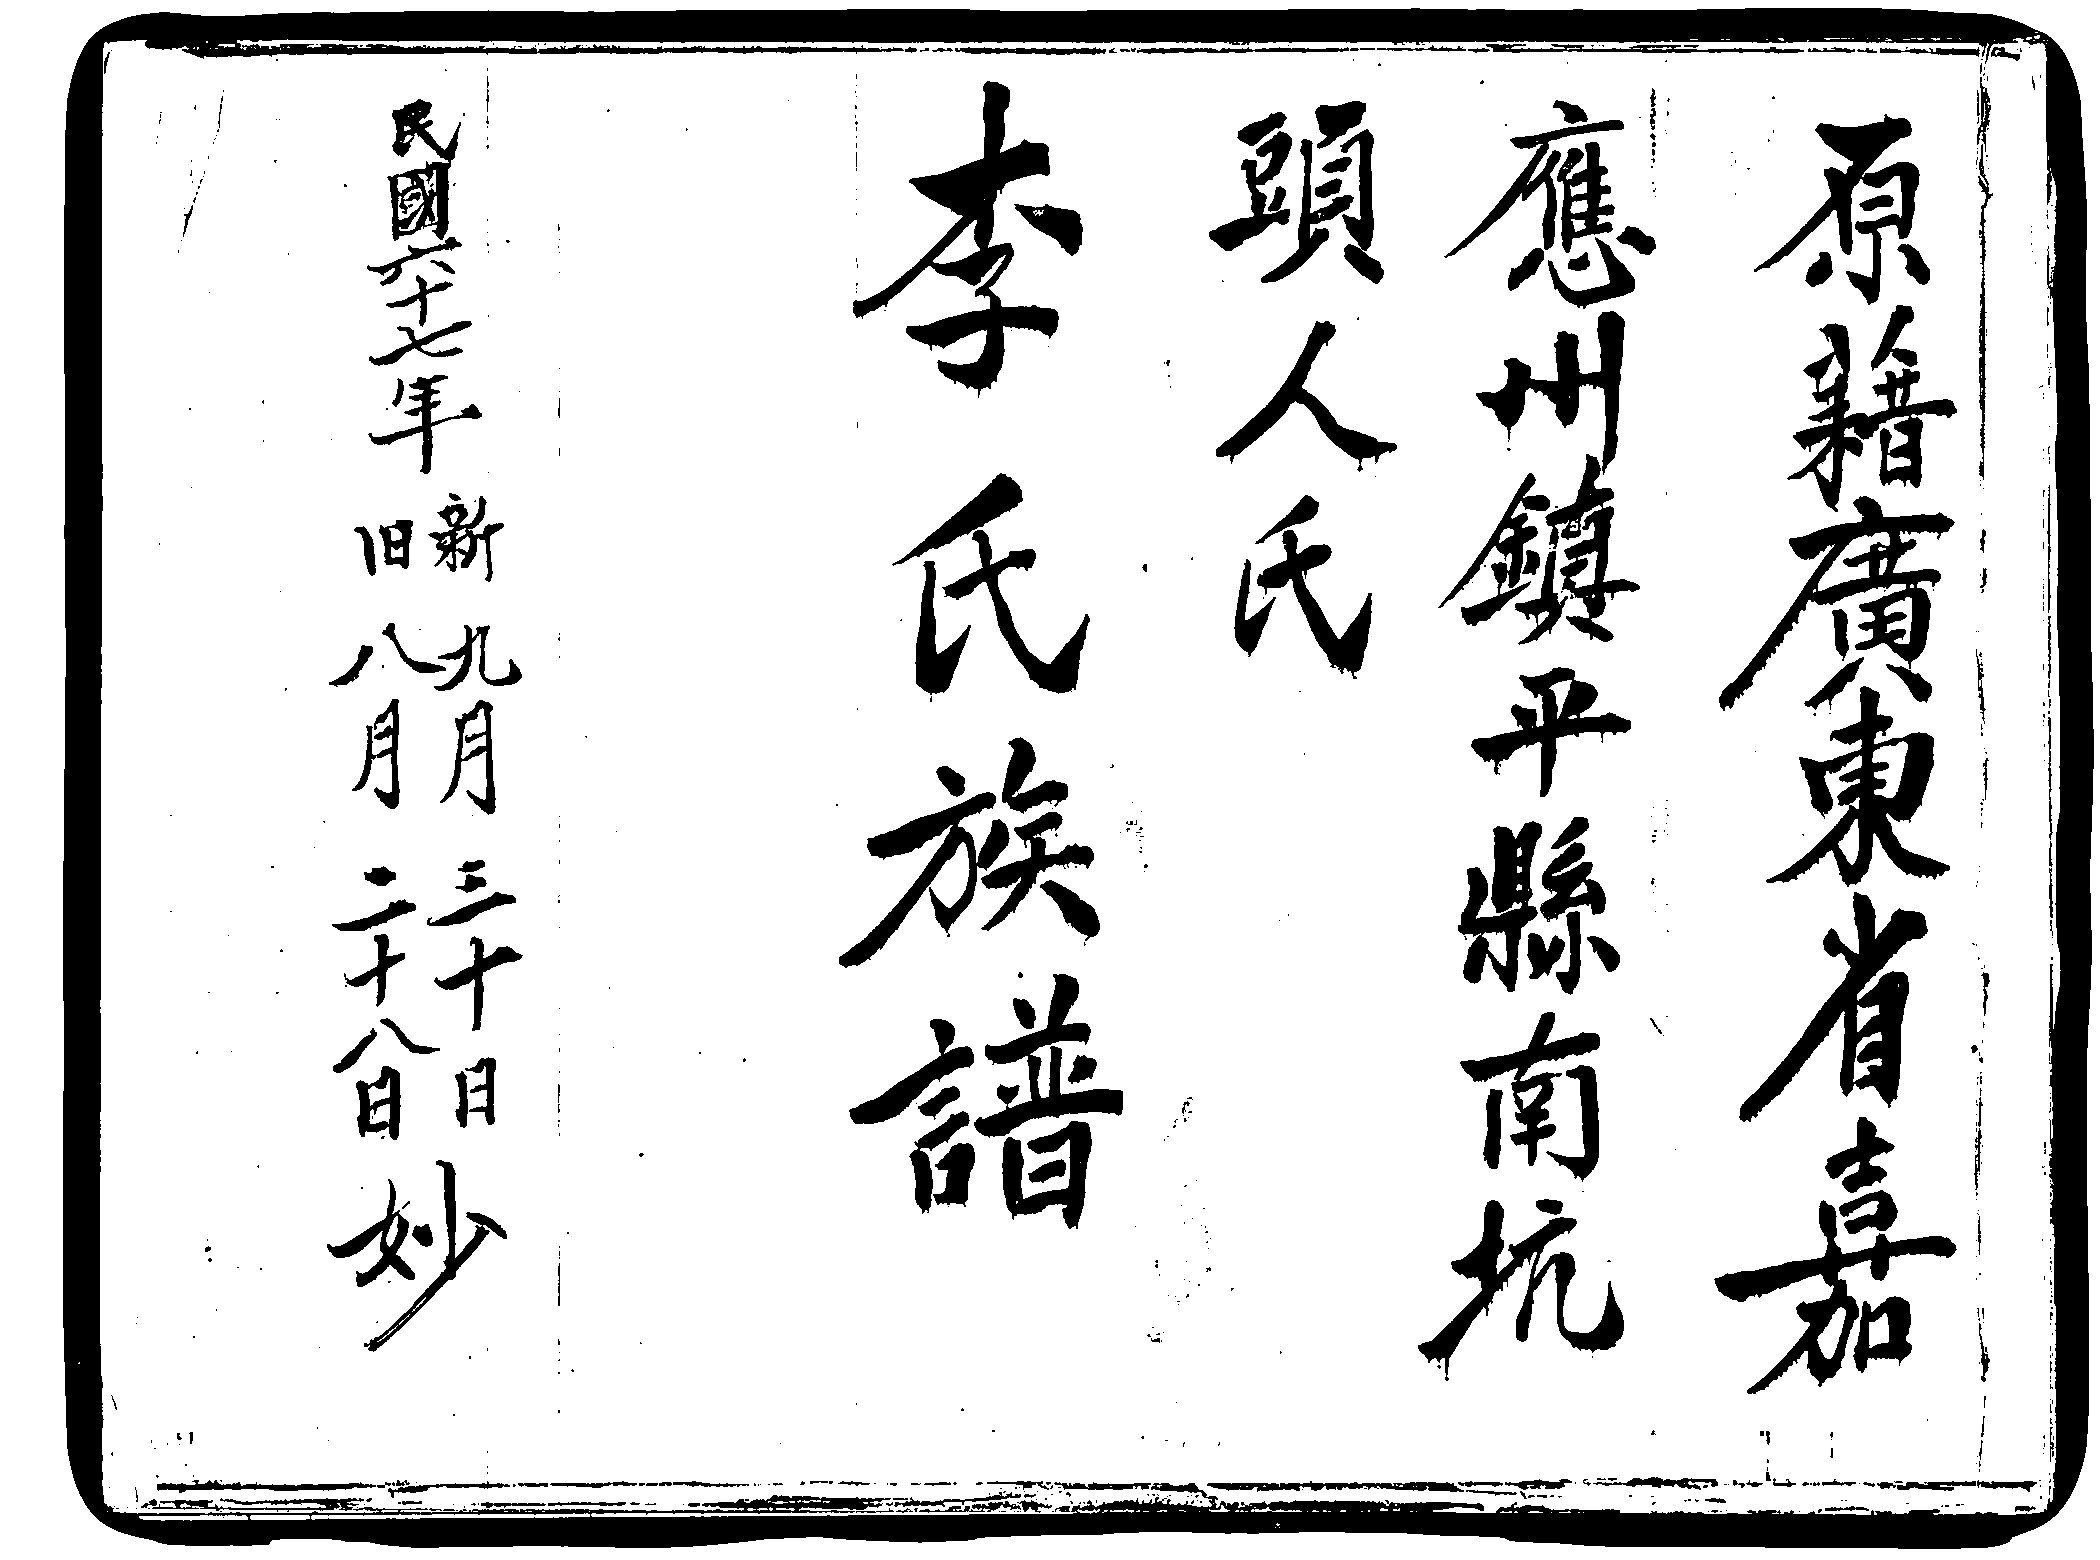 原籍廣東省嘉
應州鎮平縣南坑
頭人氏
李氏族譜
民國六十七年
新九月三十日
旧八月二十八日
妙